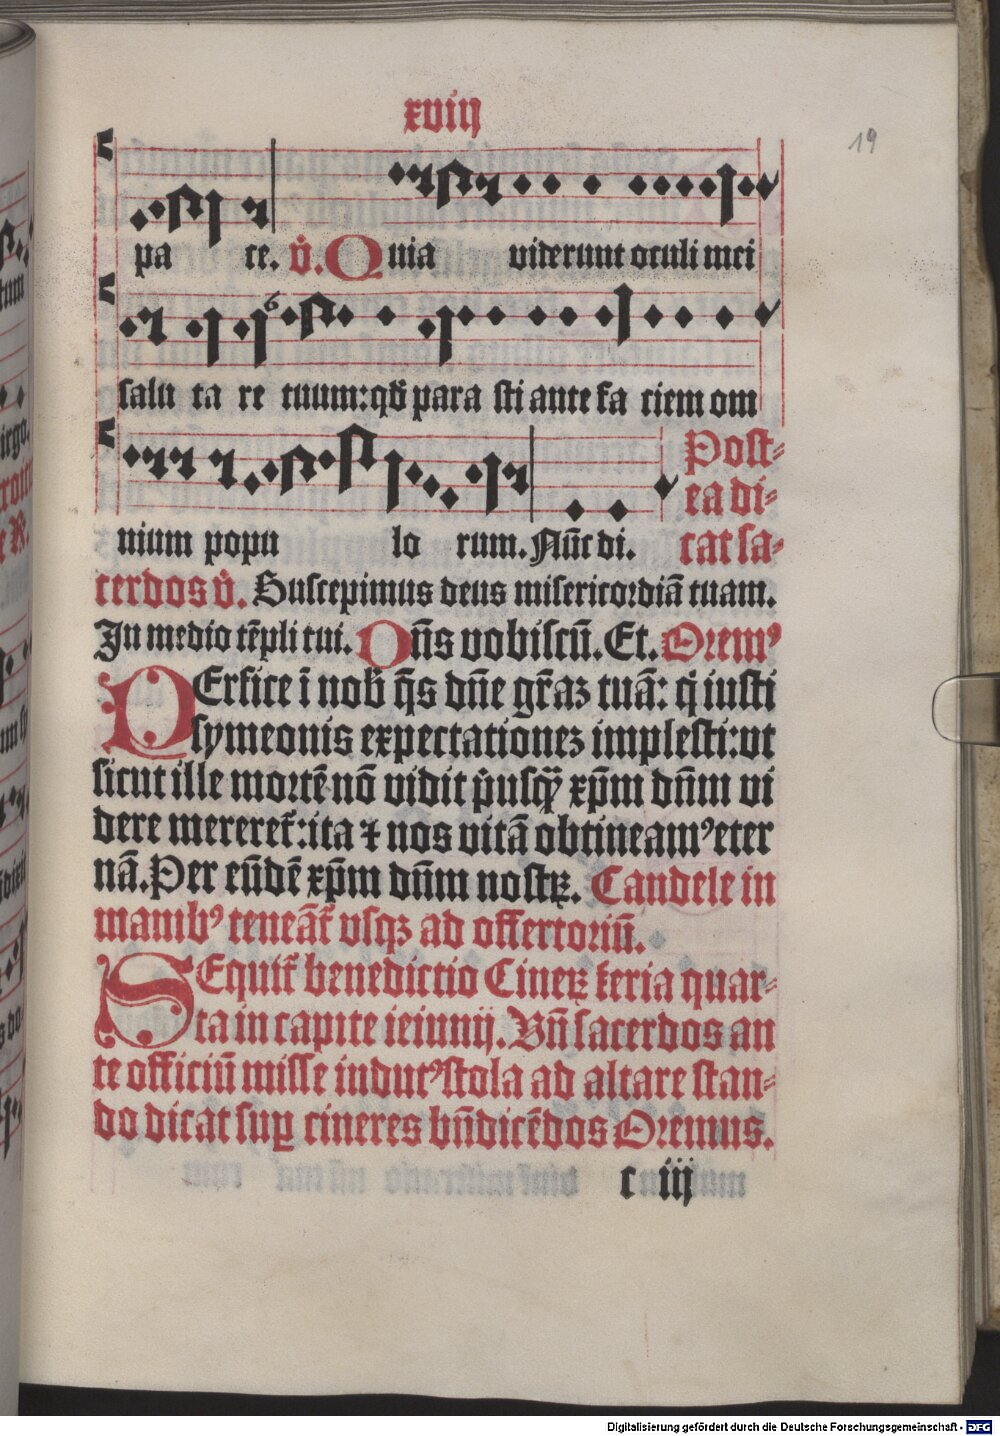 xviij
19
pa ce. v̓. Quia viderunt oculi mei
salu ta re tuum: qḋ para sti ante fa ciem om
Post-
ea di-
nium popu lo rum. Nūc di. cat sa-
cerdos v̓. Suscepimus deus misericordiā tuam.
In medio tēpli tui. Dn̄s vobiscū. Et. Oremꝰ
PErfice ī nob̓ q̄s dn̄e gr̄aꝫ tuā: q̇ iusti
symeonis expectationeꝫ implesti: vt
sicut ille mortē nō vidit p̓usqꝫ̄ xp̄m dn̄m vi
dere mereret᷑: ita ⁊ nos vitā obtineamꝰ eter
nā. Per eūdē xp̄m dn̄m nostꝝ. Candele in
manibꝰ teneāt᷑ vsqꝫ ad offertoriū.
SEquit᷑ benedictio Cineꝝ feria quar-
ta in capite ieiunij. Vn̄ sacerdos an
te officiū misse indutꝰ stola ad altare stan-
do dicat suꝑ cineres bn̄dicēdos Oremus.
c iij
Digitalisierung gefördert durch die Deutsche Forschungsgemeinschaft - DFG